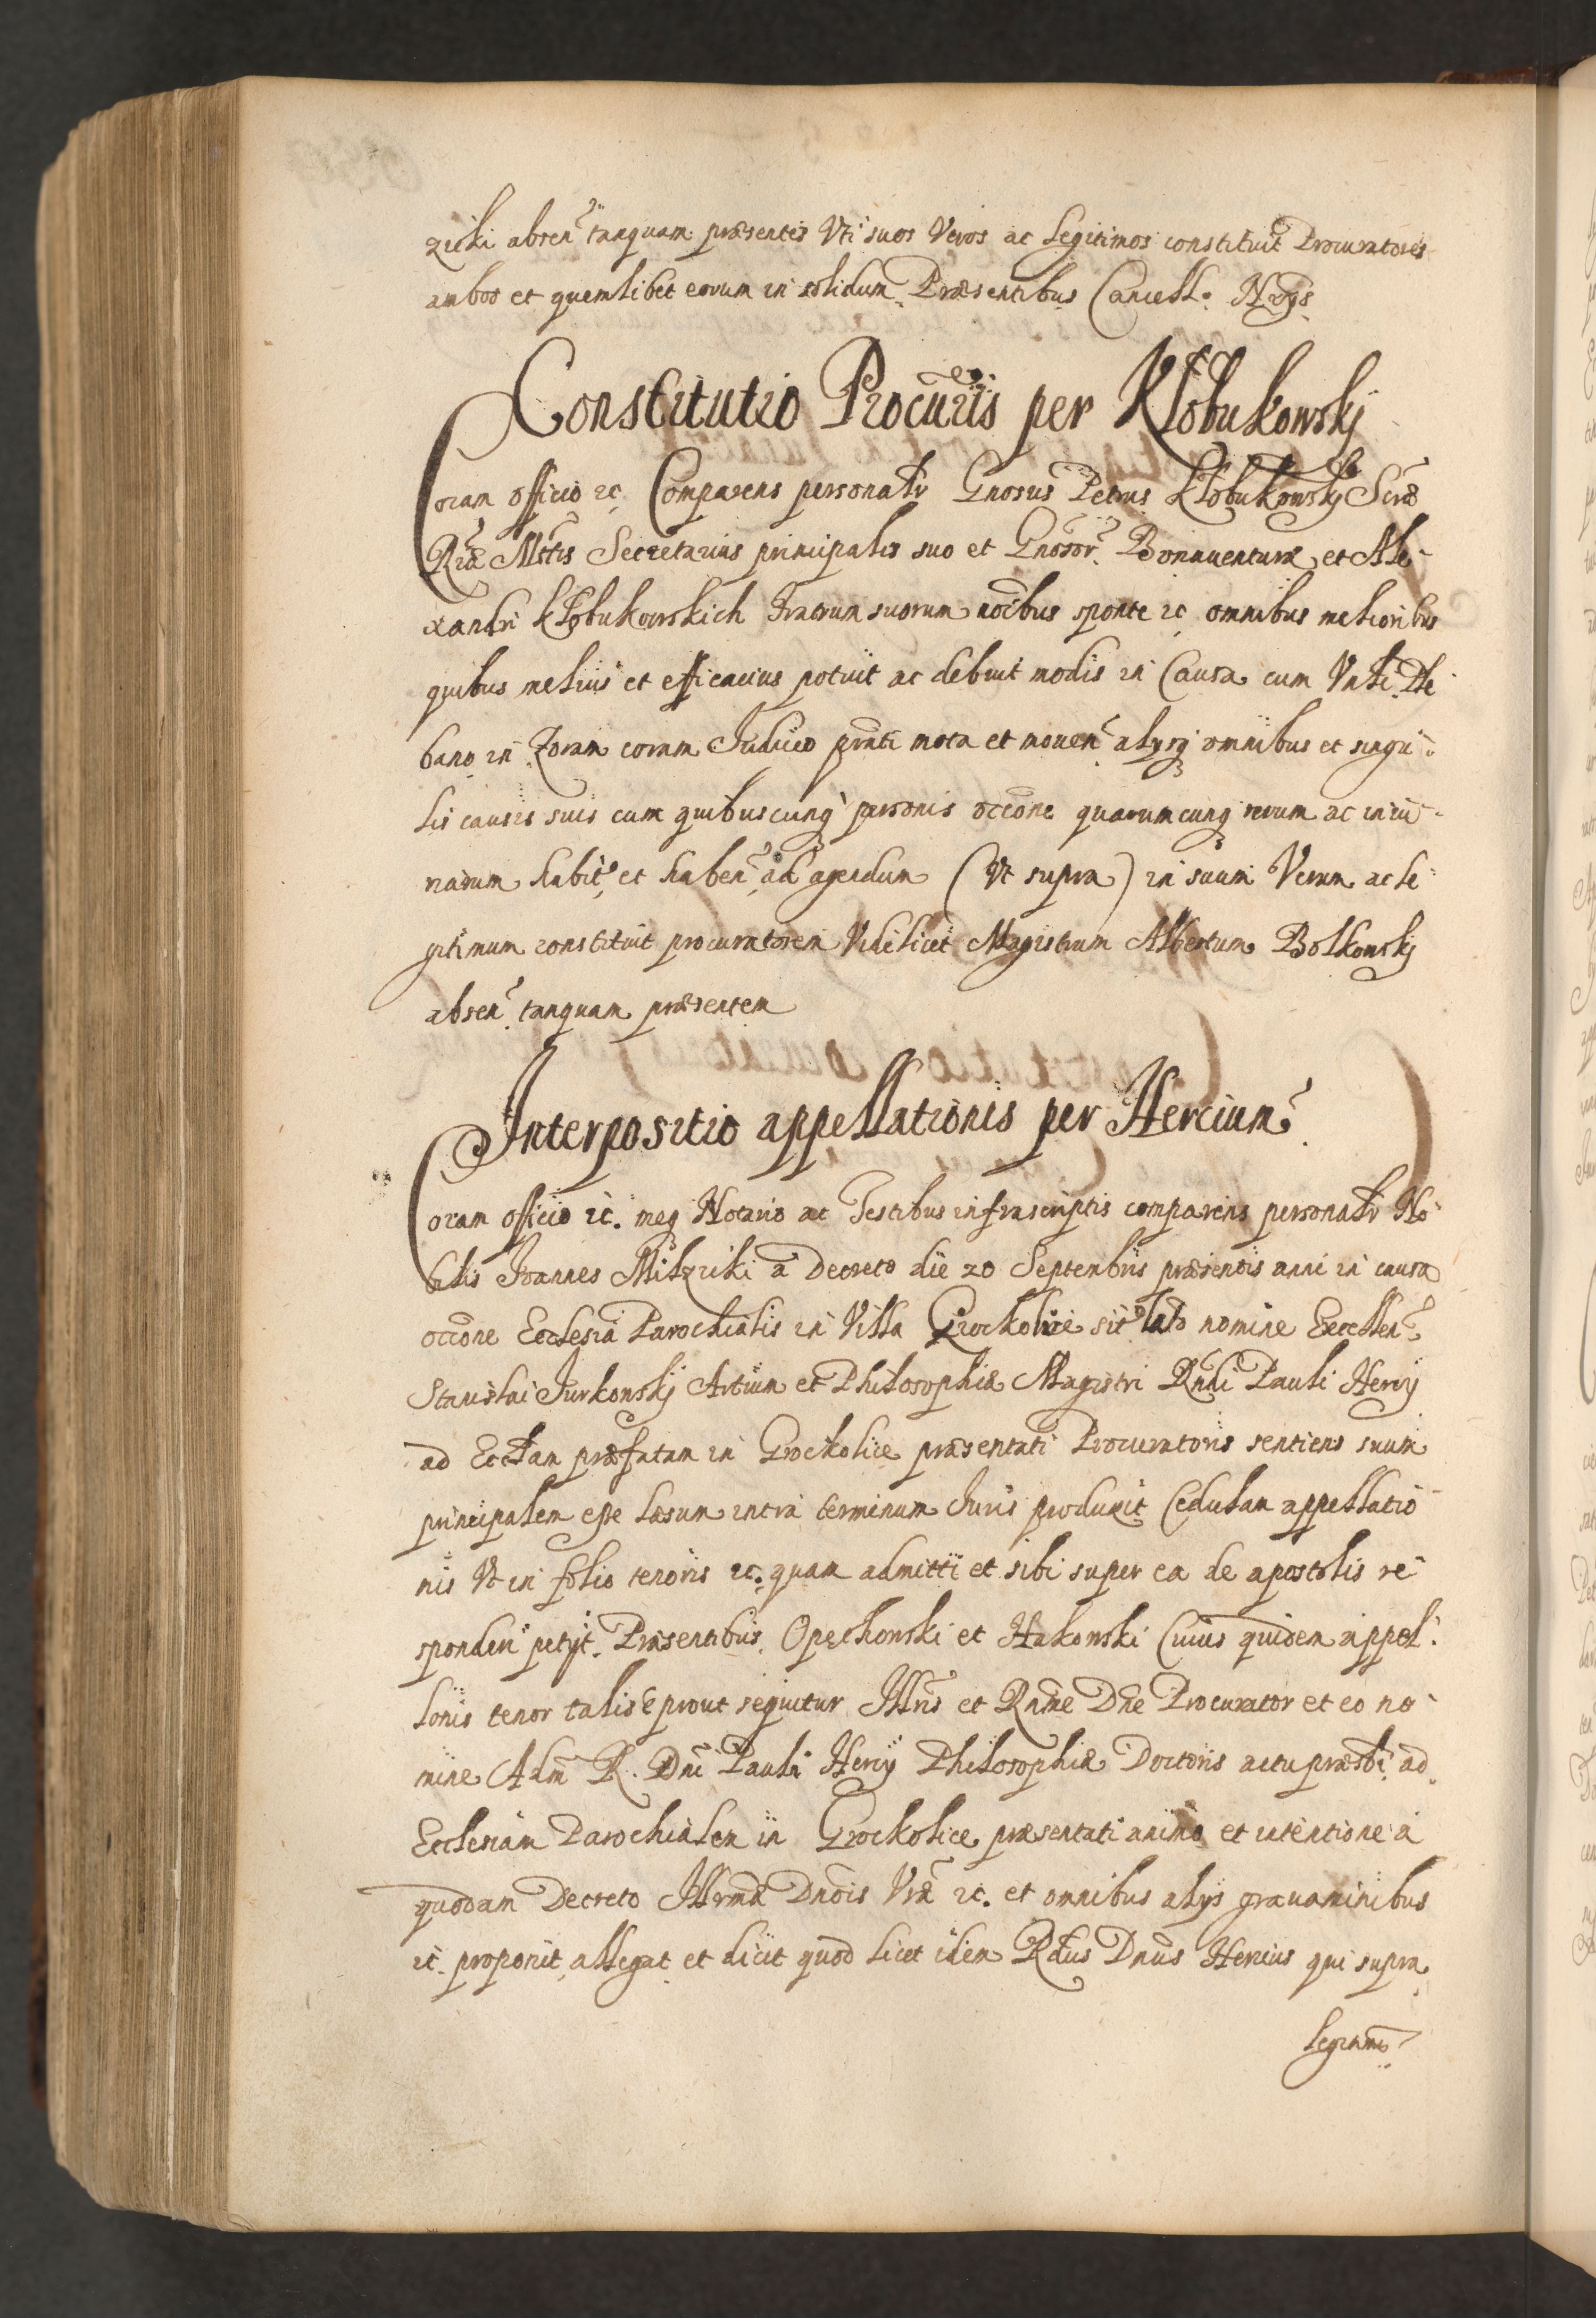 zicki absen̄ tanquam præsentes Vti suos Veros ac Legitimos constituit Procuratores
ambos et quemlibet eorum in solidum Præsentibus Cancell: Nrijs
Constitutio Procūris per Kłobukowskj
Coram officio ꝛc Comparens personalr Gnosus Petrus Kłobukowskj Scræ
Riæ Mttis Secretarius principalis suo et Gnosor̄ Bonauenturæ et Ale-
xandri Kłobukowskich Fratrum suorum noībus sponte ꝛc omnibus melioribus
quibus melius et efficacius potuit ac debuit modis in Causa cum Vnli Ple
bano in Zoran coram Judicio pn̄ti mota et mouen̄ alysq omnibus et singu-
lis causis suis cum quibuscunq personis occōne quarumcunq rerum ac iniu-
riarum habit, et haben̄ ad agendum (Vt supra) in suum Verum ac le-
gitimum constituit procuratorem Videlicet Magistrum Albertum Bolkowskj
absen̄ tanquam præsentem
Interpositio appellationis per Hercium
Coram officio ꝛc. meq Notario ac Testibus infrascriptis comparens personalr No-
bilis Joannes Milzicki a Decreto die 20 Septembris præsentis anni in causa
occōne Ecclesiæ Parochialis in Villa Grockolice sit lato nomine Excellen̄
Stanislai Jurkowskj Artium et Philosophiæ Magistri Rndi Pauli Hercij
ad Ecclam præfatam in Grockolice præsentati Procuratoris sentiens suum
principalem esse læsum intra terminum Juris produxit Cedulam appellatio-
nis Vt in folio tenoris ꝛc. quam admitti et sibi super ea de apostolis re-
sponderi petijt. Præsentibus Opechowski et Hakowski Cuius quidem appel-
lonis tenor talis ē prout sequitur Illris et Rndme Dne Procurator et eo no-
mine Adm R. Dni Pauli Hercij Philosophiæ Doctoris actu præsbi ad
Ecclesiam Parochialem in Grockolice præsentati animo et intentione a
quodam Decreto Illrmæ Dnois Vræ ꝛc. et omnibus alijs grauaminibus
ꝛc. proponit, allegat et dicit quod licet idem Rdus Dnus Hercius qui supra